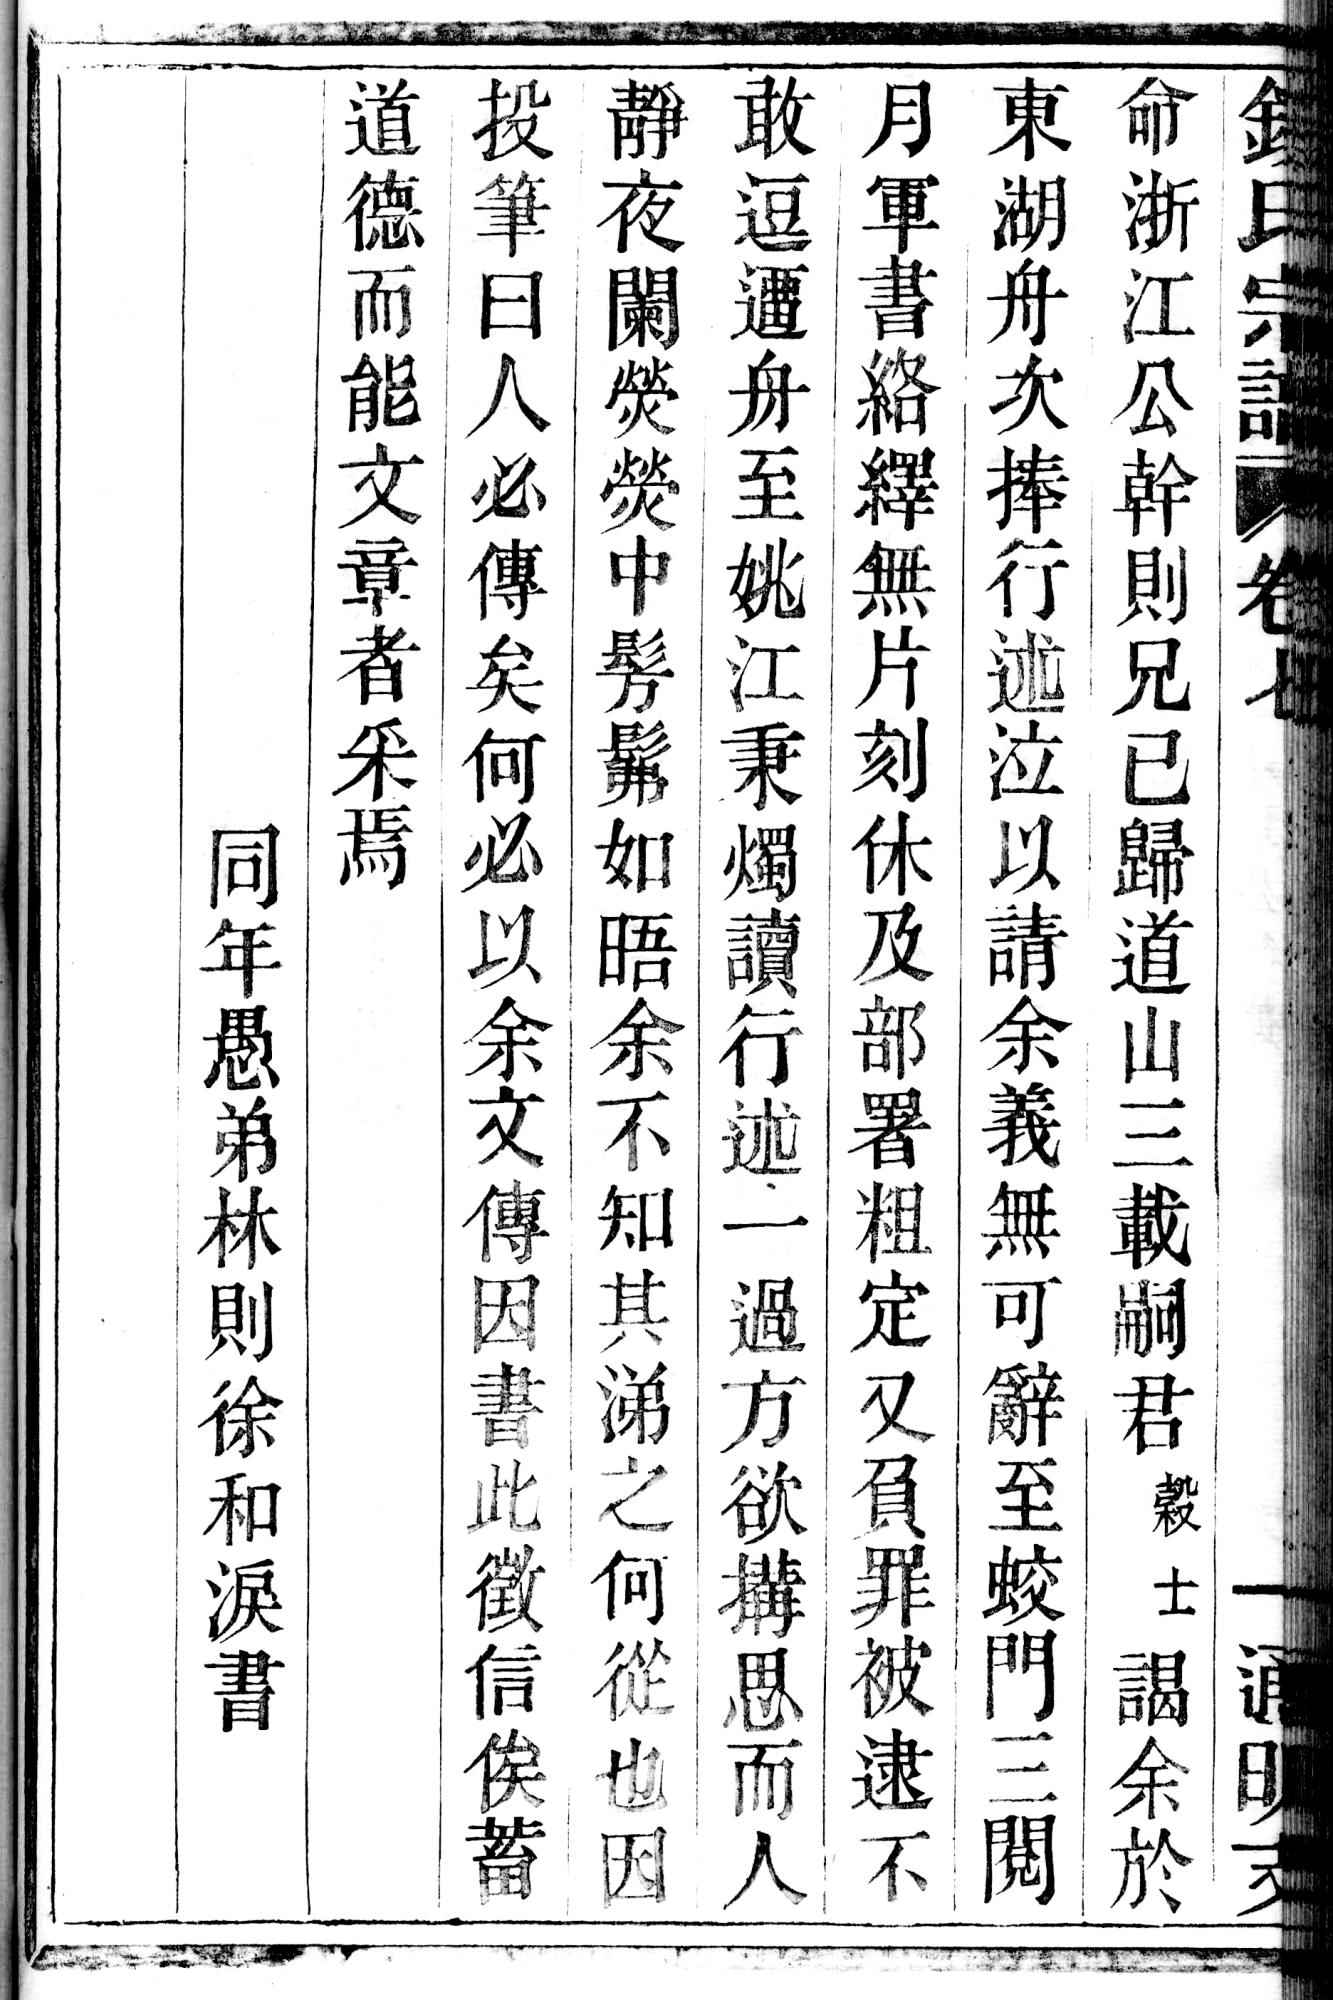 錢氏宗譜 卷七 一 通明支
命浙江公幹則兄已歸道山三載嗣君穀士謁余於
東湖舟次捧行述泣以請余義無可辭至蛟門三閱
月軍書絡繹無片刻休及部署粗定又負罪被逮不
敢逗遛舟至姚江秉燭讀行述一過方欲搆思而人
靜夜闌熒熒中髣髴如晤余不知其涕之何從也因
投筆曰人必傳矣何必以余文傳因書此徵信俟蓄
道德而能文章者采焉
同年愚弟林則徐和淚書